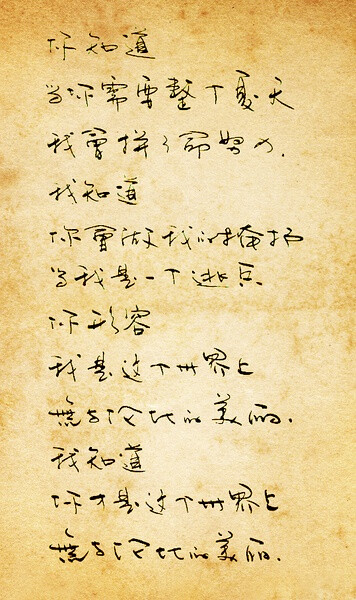 你知道
当你需要整个夏天
我會拼了命努力.
我知道
你會做我的掩护
当我是一个逃兵
你形容
我是这个世界上
無与伦比的美丽.
我知道
你才是这个世界上
無与伦比的美丽.